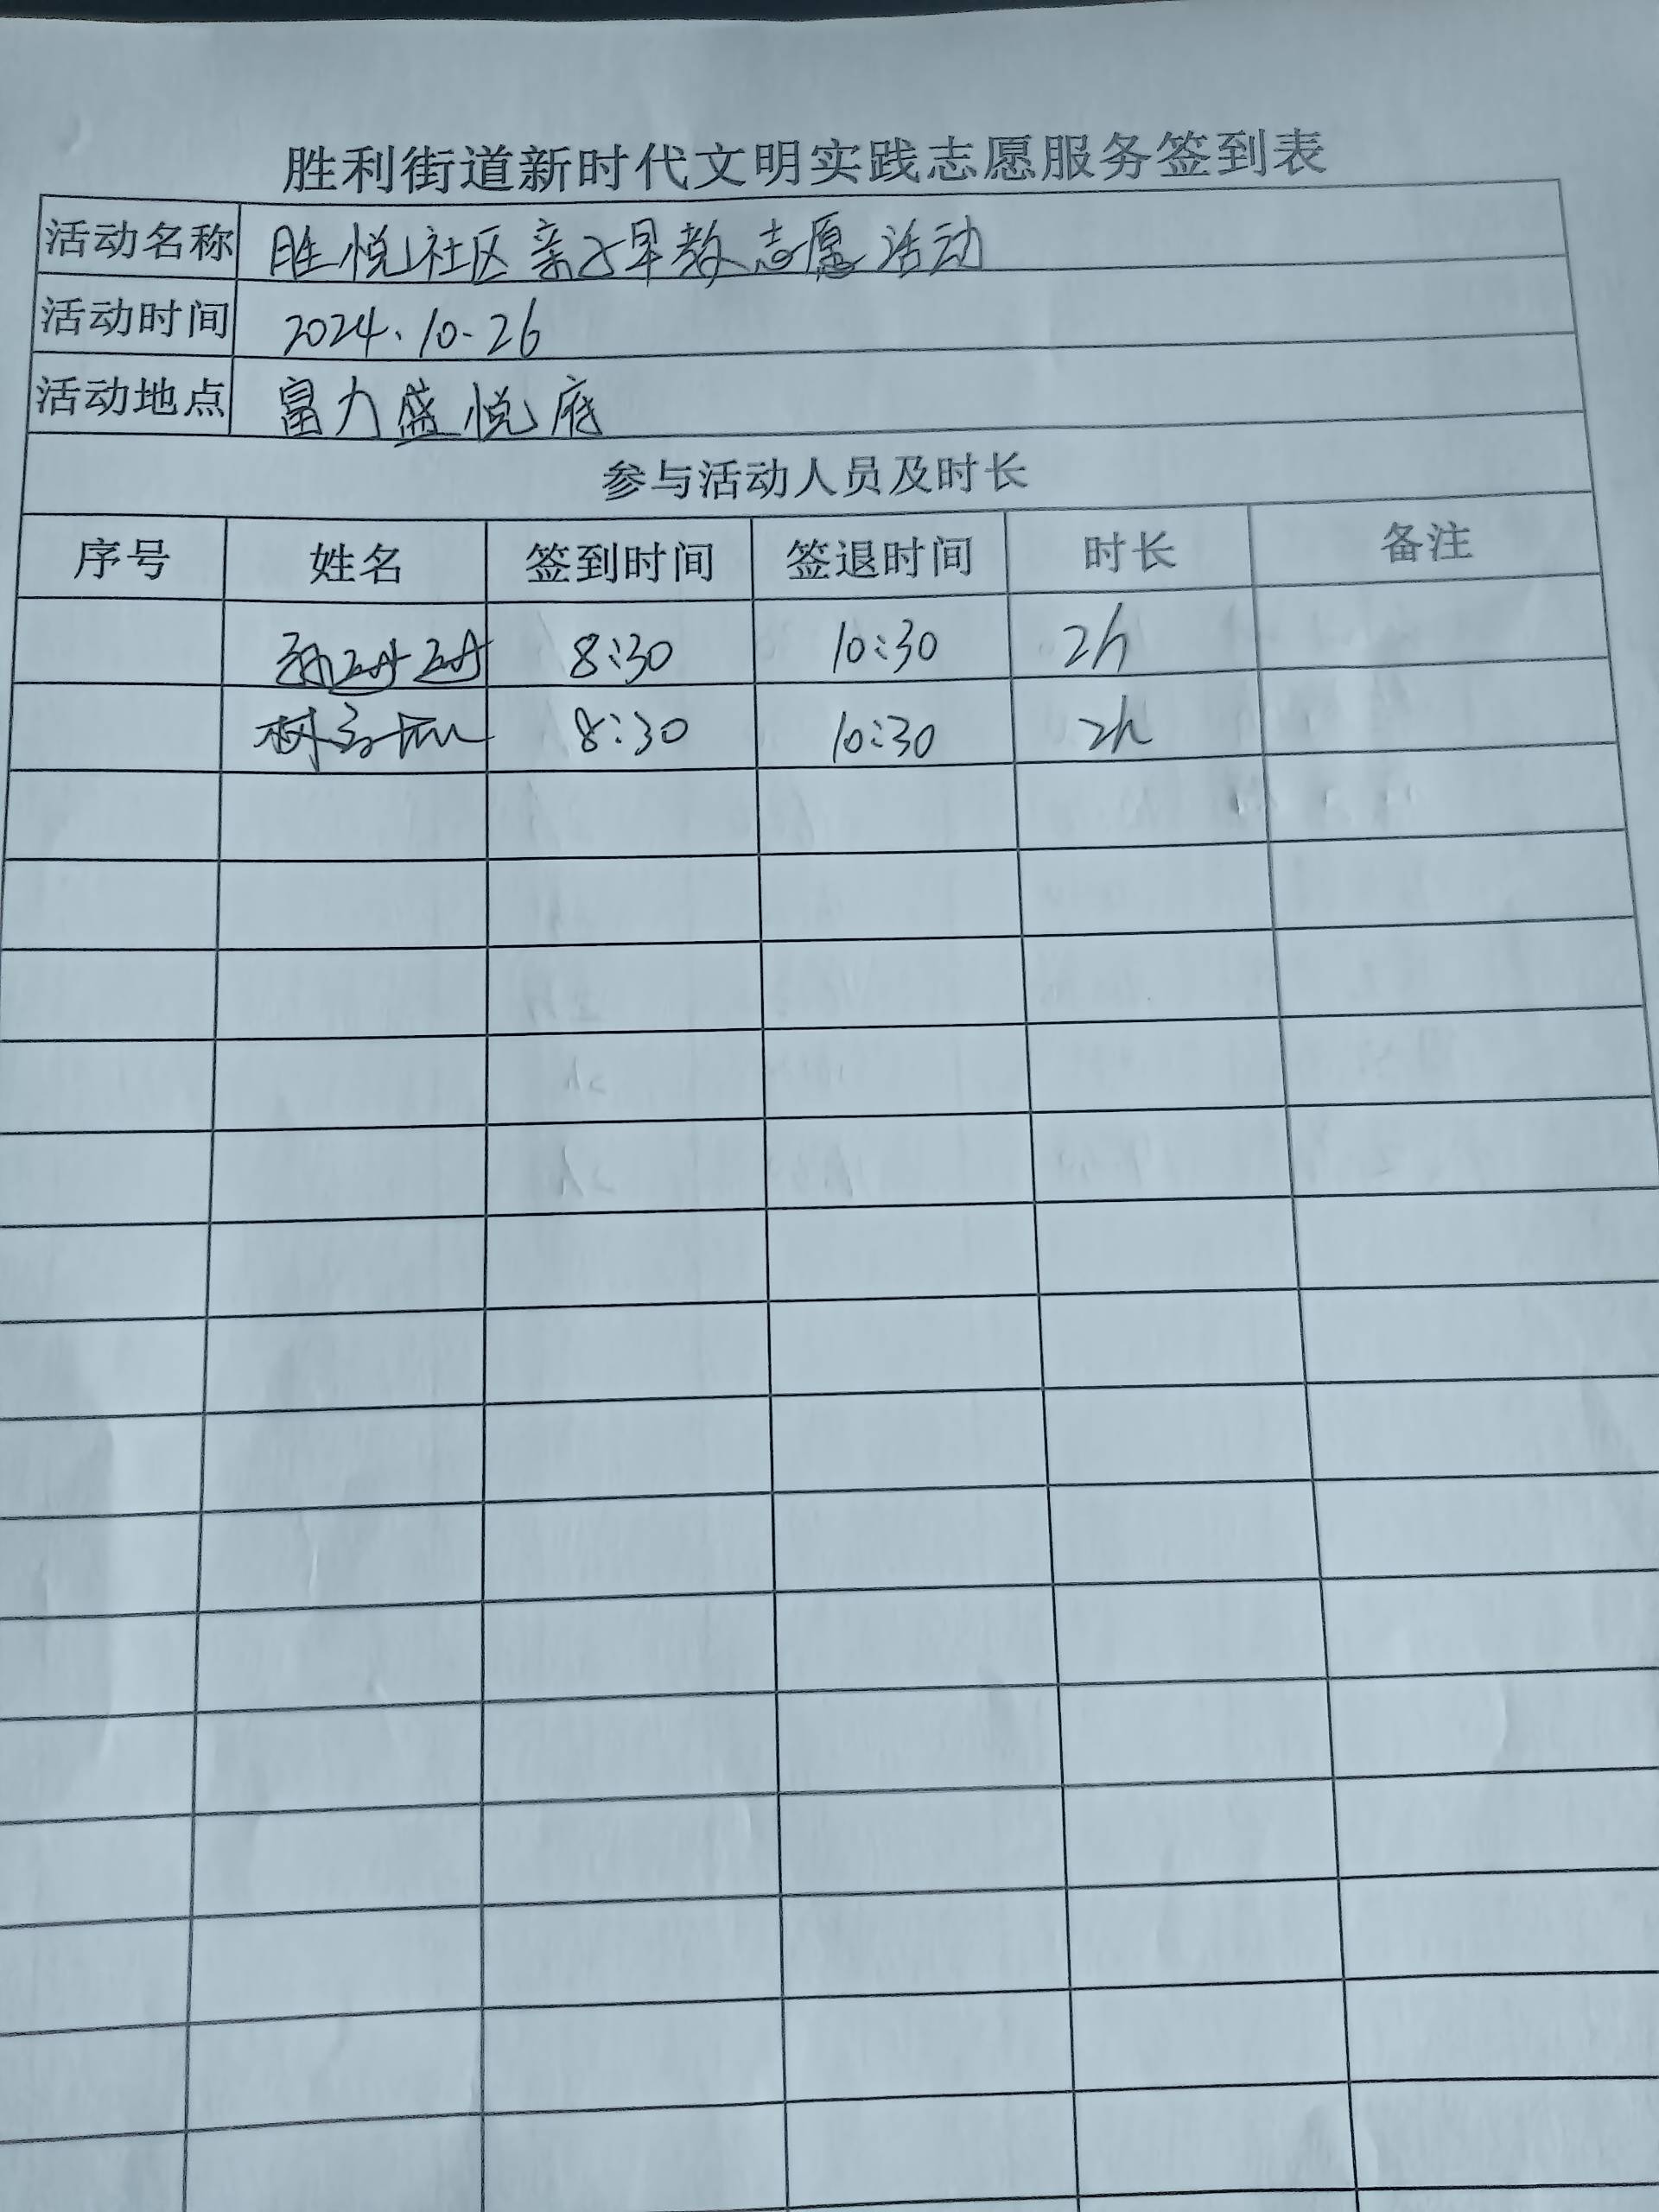 胜利街道新时代文明实践志愿服务签到表
活动名称 胜悦社区亲子早教志愿活动
活动时间 2024.10.26
活动地点 富力盛悦府
参与活动人员及时长
序号 姓名 签到时间 签退时间 时长 备注
8:30 10:30 2h
8:30 10:30 2h